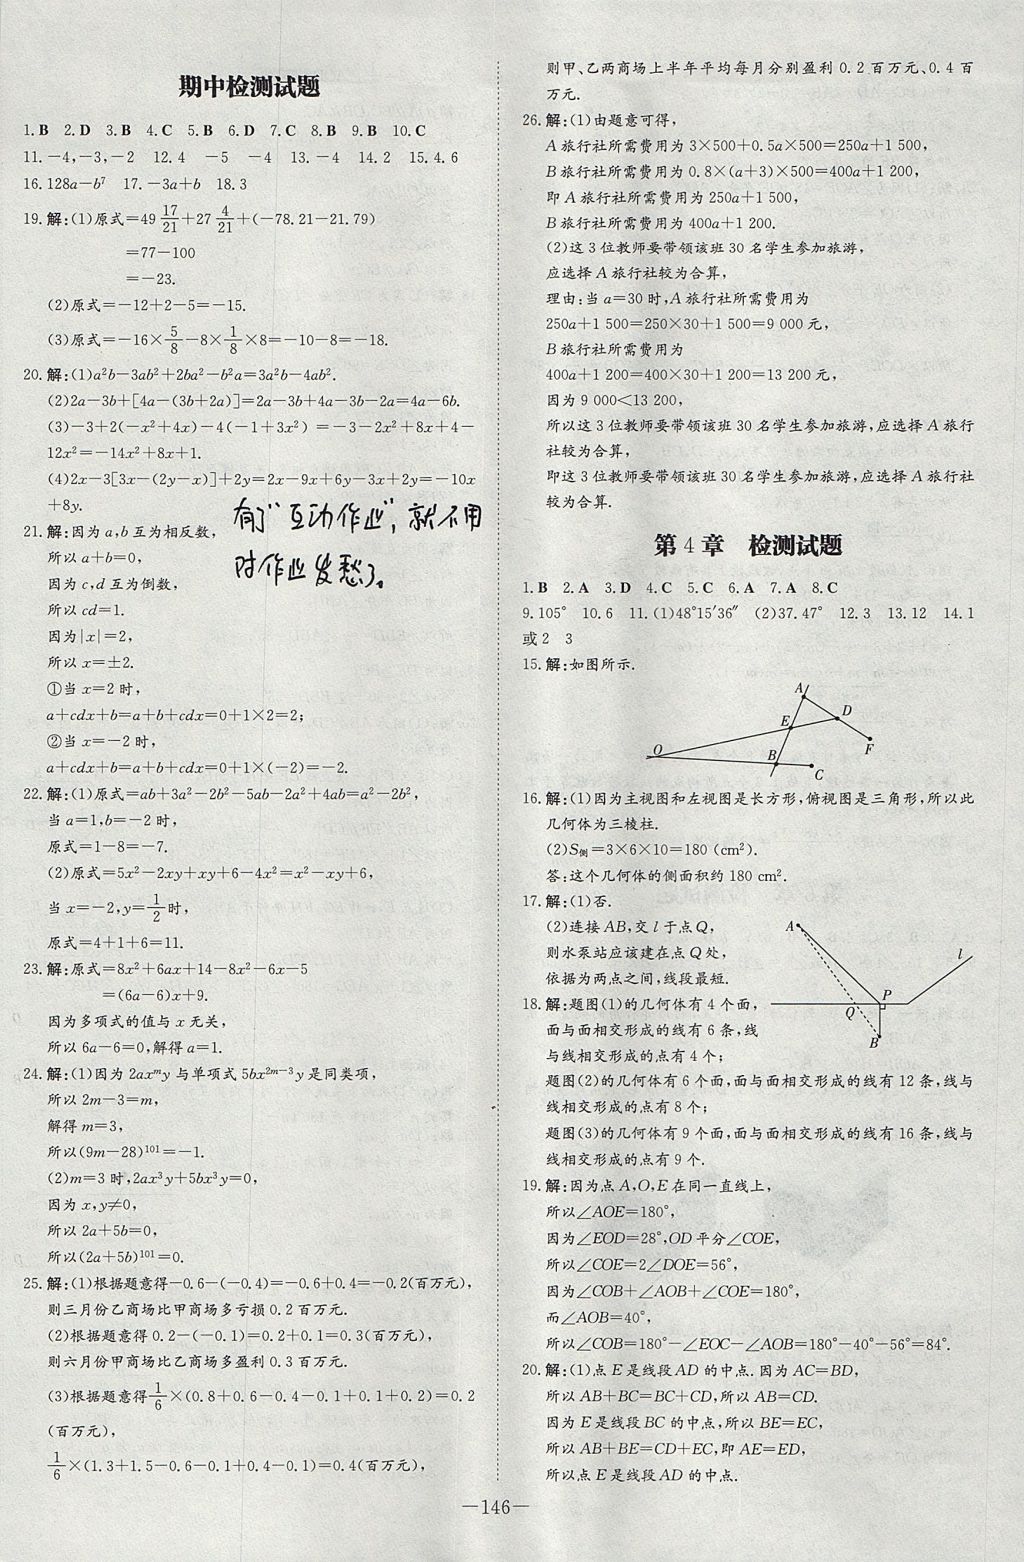 期中检测试题
1.B 2.D 3.B 4.C 5.B 6.D 7.C 8.B 9.B 10.C
11.-4,-3,-2 12.4 -5 -4 13.-4 14.2 15.4.6
16.128a-b⁷ 17.-3a+b 18.3
19.解:(1)原式=49 17/21+27 4/21+(-78.21-21.79)
=77-100
=-23.
(2)原式=-12+2-5=-15.
(3)原式=-16×5/8-8×1/8×8=-10-8=-18.
20.解:(1)a²b-3ab²+2ba²-b²a=3a²b-4ab².
(2)2a-3b+[4a-(3b+2a)]=2a-3b+4a-3b-2a=4a-6b.
(3)-3+2(-x²+4x)-4(-1+3x²)=-3-2x²+8x+4-
12x²=-14x²+8x+1.
(4)2x-3[3x-(2y-x)]+2y=2x-9x+6y-3x+2y=-10x
+8y.
有了“互动作业”,就不用
对作业发愁了。
21.解:因为a,b互为相反数,
所以a+b=0,
因为c,d互为倒数,
所以cd=1.
因为|x|=2,
所以x=±2.
①当x=2时,
a+cdx+b=a+b+cdx=0+1×2=2;
②当x=-2时,
a+cdx+b=a+b+cdx=0+1×(-2)=-2.
22.解:(1)原式=ab+3a²-2b²-5ab-2a²+4ab=a²-2b²,
当a=1,b=-2时,
原式=1-8=-7.
(2)原式=5x²-2xy+xy+6-4x²=x²-xy+6,
当x=-2,y=1/2时,
原式=4+1+6=11.
23.解:原式=8x²+6ax+14-8x²-6x-5
=(6a-6)x+9.
因为多项式的值与x无关,
所以6a-6=0,解得a=1.
24.解:(1)因为2axᵐy与单项式5bx²ᵐ⁻³y是同类项,
所以2m-3=m,
解得m=3,
所以(9m-28)¹⁰¹=-1.
(2)m=3时,2ax³y+5bx³y=0,
因为x,y≠0,
所以2a+5b=0,
所以(2a+5b)¹⁰¹=0.
25.解:(1)根据题意得-0.6-(-0.4)=-0.6+0.4=-0.2(百万元),
则三月份乙商场比甲商场多亏损0.2百万元.
(2)根据题意得0.2-(-0.1)=0.2+0.1=0.3(百万元),
则六月份甲商场比乙商场多盈利0.3百万元.
(3)根据题意得1/6×(0.8+0.6-0.4-0.1+0.1+0.2)=0.2
(百万元),
1/6×(1.3+1.5-0.6-0.1+0.4-0.1)=0.4(百万元),
则甲、乙两商场上半年平均每月分别盈利0.2百万元、0.4百
万元.
26.解:(1)由题意可得,
A旅行社所需费用为3×500+0.5a×500=250a+1 500,
B旅行社所需费用为0.8×(a+3)×500=400a+1 200,
即A旅行社所需费用为250a+1 500,
B旅行社所需费用为400a+1 200.
(2)这3位教师要带领该班30名学生参加旅游,
应选择A旅行社较为合算,
理由:当a=30时,A旅行社所需费用为
250a+1 500=250×30+1 500=9 000元,
B旅行社所需费用为
400a+1 200=400×30+1 200=13 200元,
因为9 000<13 200,
所以这3位教师要带领该班30名学生参加旅游,应选择A旅行
社较为合算.
即这3位教师要带领该班30名学生参加旅游,应选择A旅行社
较为合算.
第4章 检测试题
1.B 2.A 3.D 4.C 5.C 6.A 7.A 8.C
9.105° 10.6 11.(1)48°15′36″ (2)37.47° 12.3 13.12 14.1
或2 3
15.解:如图所示.
A
D
E
F
O
B
C
16.解:(1)因为主视图和左视图是长方形,俯视图是三角形,所以此
几何体为三棱柱.
(2)S侧=3×6×10=180 (cm²).
答:这个几何体的侧面积约180 cm².
17.解:(1)否.
(2)连接AB,交l于点Q,
则水泵站应该建在点Q处,
依据为两点之间,线段最短.
A
l
P
Q
B
18.解:题图(1)的几何体有4个面,
面与面相交形成的线有6条,线
与线相交形成的点有4个;
题图(2)的几何体有6个面,面与面相交形成的线有12条,线与
线相交形成的点有8个;
题图(3)的几何体有9个面,面与面相交形成的线有16条,线与
线相交形成的点有9个.
19.解:因为点A,O,E在同一直线上,
所以∠AOE=180°,
因为∠EOD=28°,OD平分∠COE,
所以∠COE=2∠DOE=56°,
因为∠COB+∠AOB+∠COE=180°,
而∠AOB=40°,
所以∠COB=180°-∠EOC-∠AOB=180°-40°-56°=84°.
20.解:(1)点E是线段AD的中点.因为AC=BD,
所以AB+BC=BC+CD,所以AB=CD.
因为E是线段BC的中点,所以BE=EC,
所以AB+BE=CD+EC,即AE=ED,
所以点E是线段AD的中点.
—146—